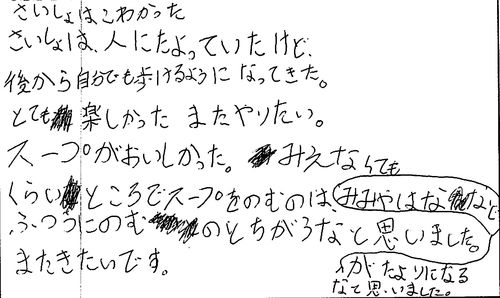 さいしょはこわかった
さいしょは、人にたよっていたけど、
後から自分でも歩けるようになってきた。
とても楽しかった またやりたい。
スープがおいしかった。みえなくても
くらいところでスープをのむのは、みみやはななど
ふつうにのむのとちがうなと思いました。
がたよりになる
またきたいです。
なと思いました。